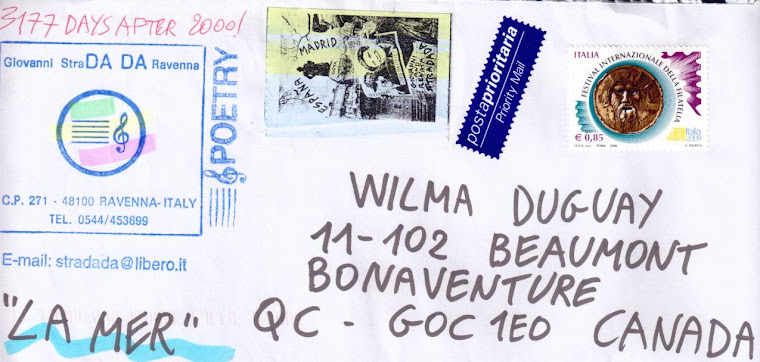 3177 DAYS AFTER 2000!
Giovanni StraDA DA Ravenna
POETRY
C.P. 271 - 48100 RAVENNA-ITALY
TEL. 0544/453699
E-mail: stradada@libero.it
"LA MER"
MADRID
ESPAÑA
postaprioritaria
Priority Mail
ITALIA
FESTIVAL INTERNAZIONALE DELLA FILATELIA
€ 0,85
Italia
2009
WILMA DUGUAY
11-102 BEAUMONT
BONAVENTURE
QC - GOC 1EO CANADA